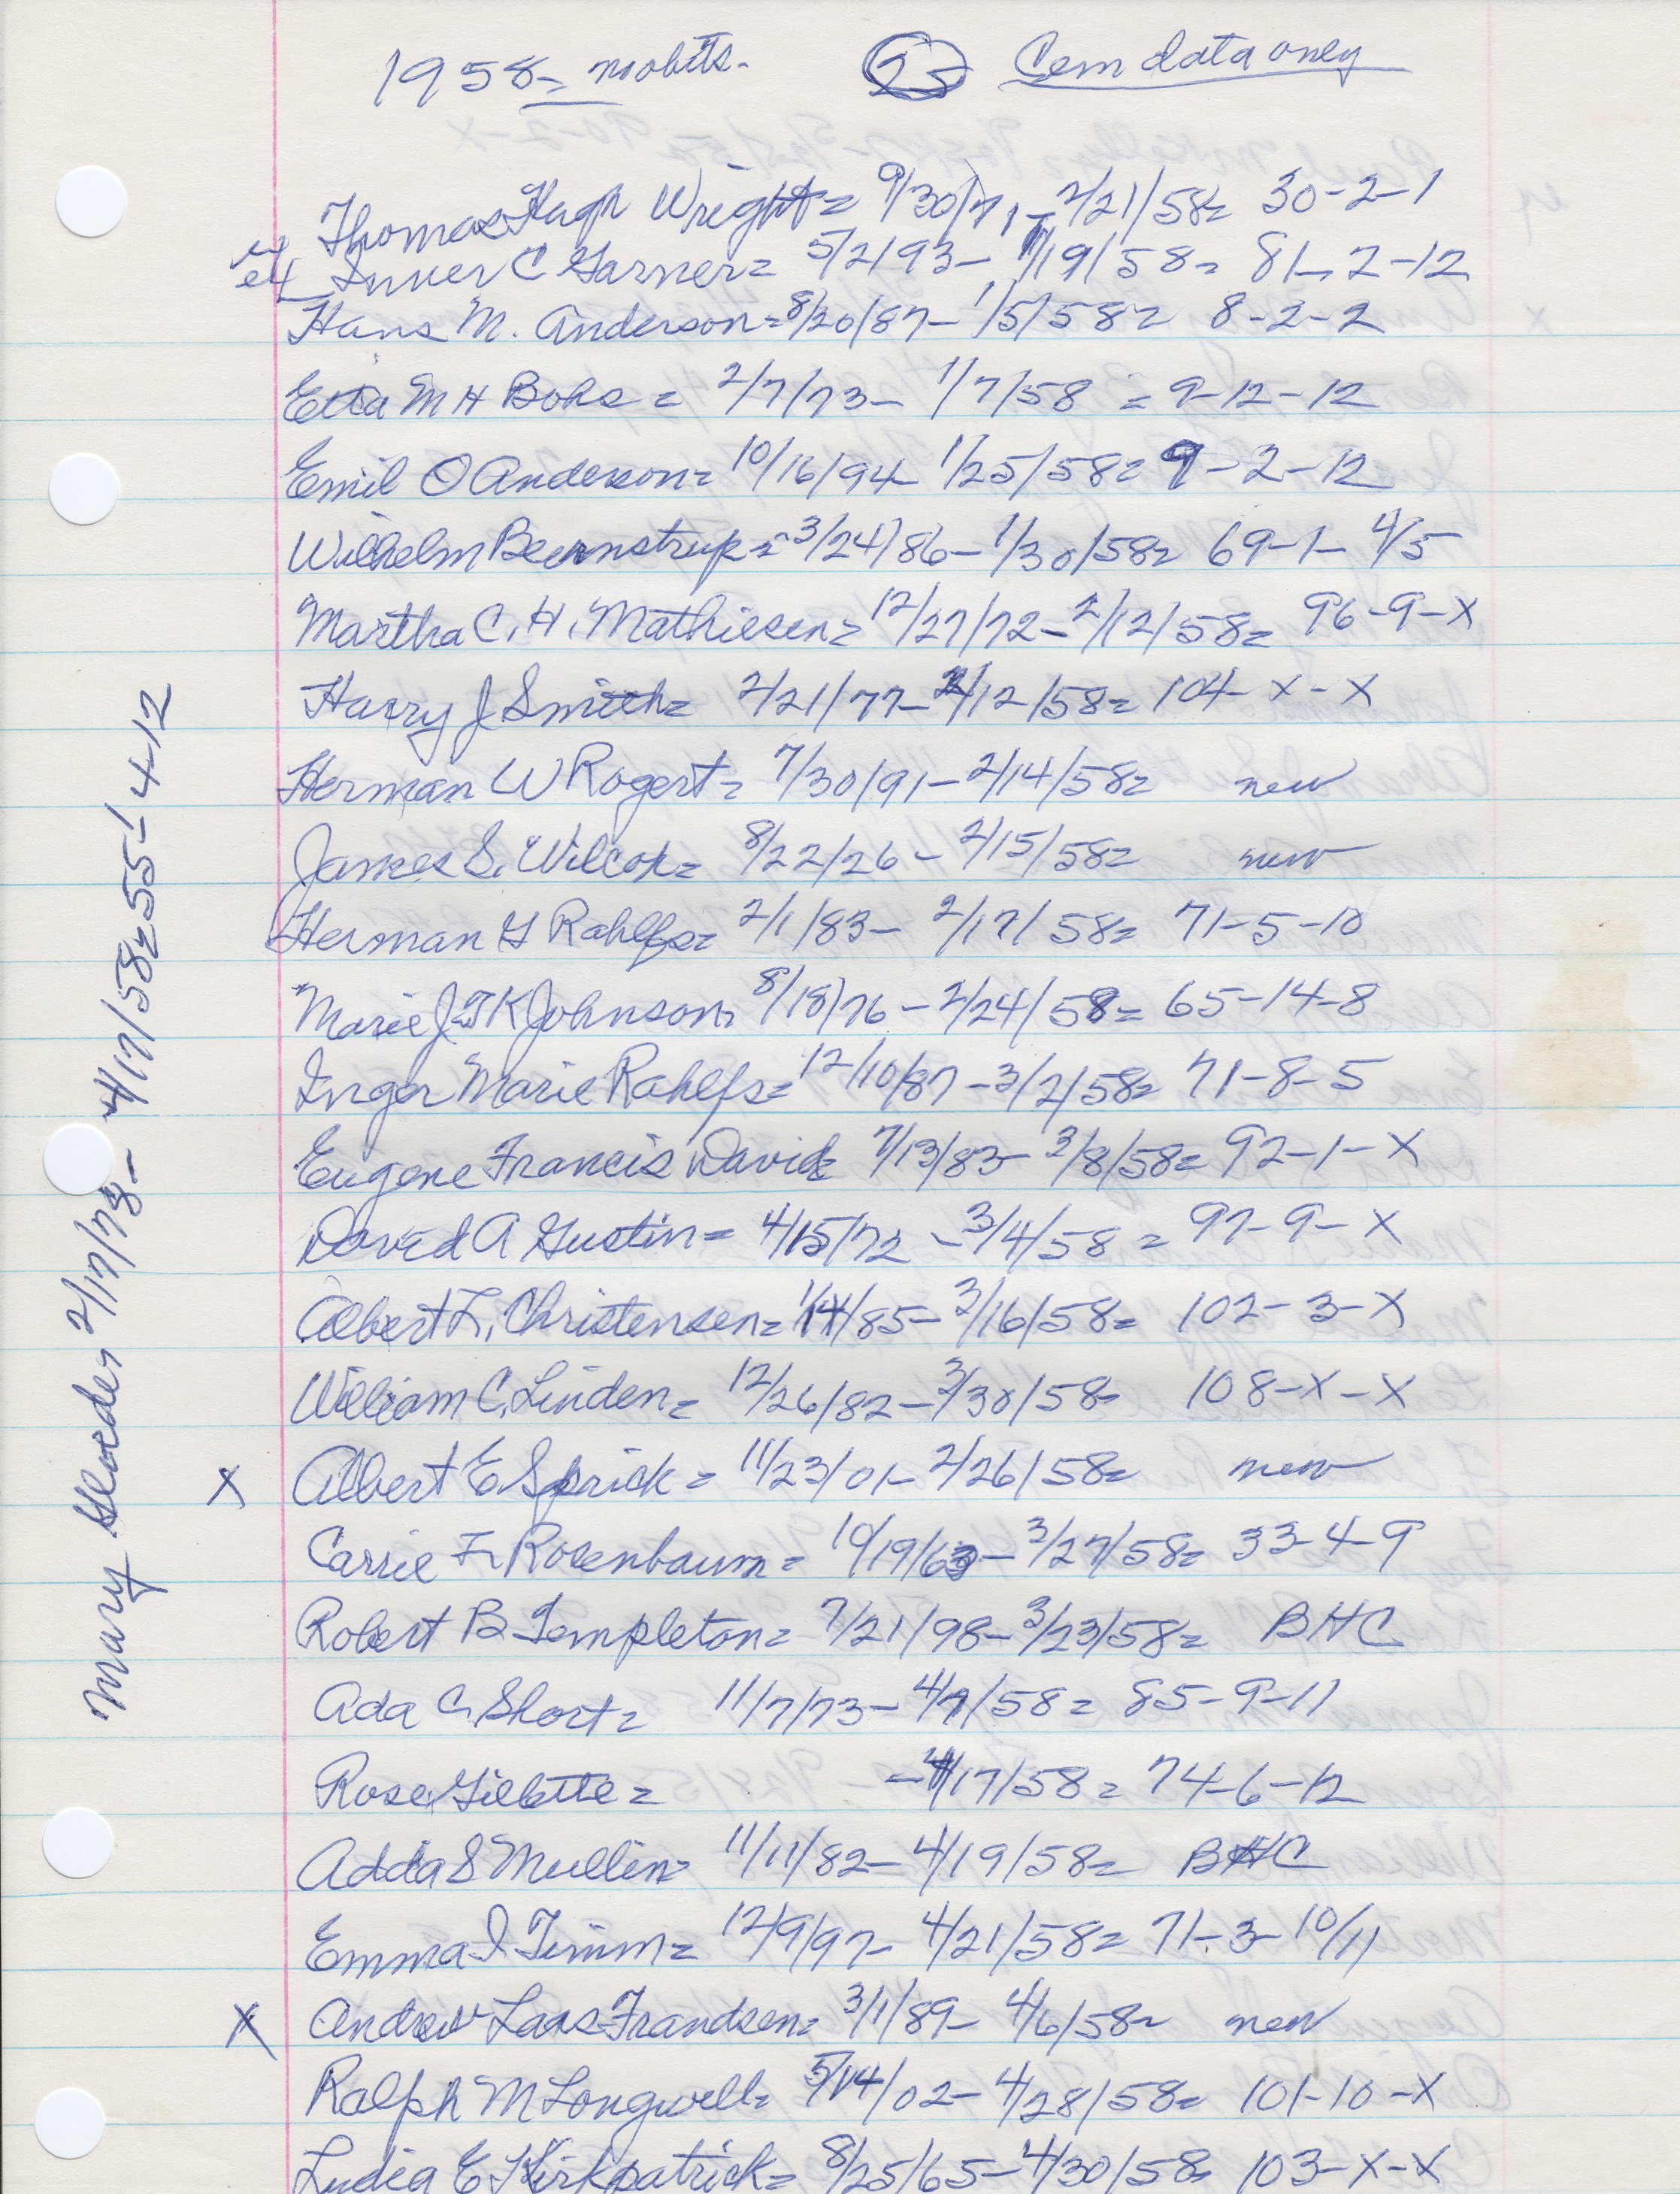 1958 = no obits. 25 Cem data only
Thomas Hugh Wright = 9/30/71 - 2/21/58 = 30-2-1
ex C Garner = 5/2/93 - 1/19/58 = 81-2-12
Hans M. Anderson = 8/20/87 - 1/5/58 = 8-2-2
Etta M H Bohs = 2/7/73 - 1/7/58 = 9-12-12
Emil O Anderson = 10/16/94 1/25/58 = 9-2-12
Wilhelm Beernstrup = 3/24/86 - 1/30/58 = 69-1-4/5
Martha C. H. Mathiesen = 12/27/72 - 2/12/58 = 96-9-X
Harry J Smith = 2/21/77 - 2/12/58 = 104-X-X
Herman W Rogert = 7/30/91 - 2/14/58 = new
James S. Wilcox = 8/22/26 - 2/15/58 = new
Herman G Rahlfs = 2/1/83 - 2/17/58 = 71-5-10
Marie J. T K Johnson = 8/18/76 - 2/24/58 = 65-14-8
Inger Marie Rahlfs = 12/10/87 - 3/2/58 = 71-8-5
Eugene Francis David = 7/13/83 - 3/8/58 = 92-1-X
David A Gustin = 4/15/72 - 3/4/58 = 97-9-X
Albert L. Christensen = 1/14/85 - 3/16/58 = 102-3-X
William C. Linden = 12/26/82 - 3/30/58 = 108-X-X
X Albert E. Sprick = 11/23/01 - 2/26/58 = new
Carrie F. Rosenbaum = 10/19/63 - 3/27/58 = 33-4-9
Robert B Templeton = 7/21/98 - 3/23/58 = BHC
Ada C. Short = 11/7/73 - 4/7/58 = 85-9-11
Rose Gillette = - 4/17/58 = 74-6-12
Adda S Mullin = 11/11/82 - 4/19/58 = BHC
Emma I Timm = 12/9/97 - 4/21/58 = 71-3-10/11
X Andrew Laas Frandsen = 3/1/89 - 4/6/58 = new
Ralph M Longwell = 5/14/02 - 4/28/58 = 101-10-X
Lydia E Kirkpatrick = 8/25/65 - 4/30/58 = 103-X-X
Mary 2/17/73 - 4/17/58 = 55-4-12